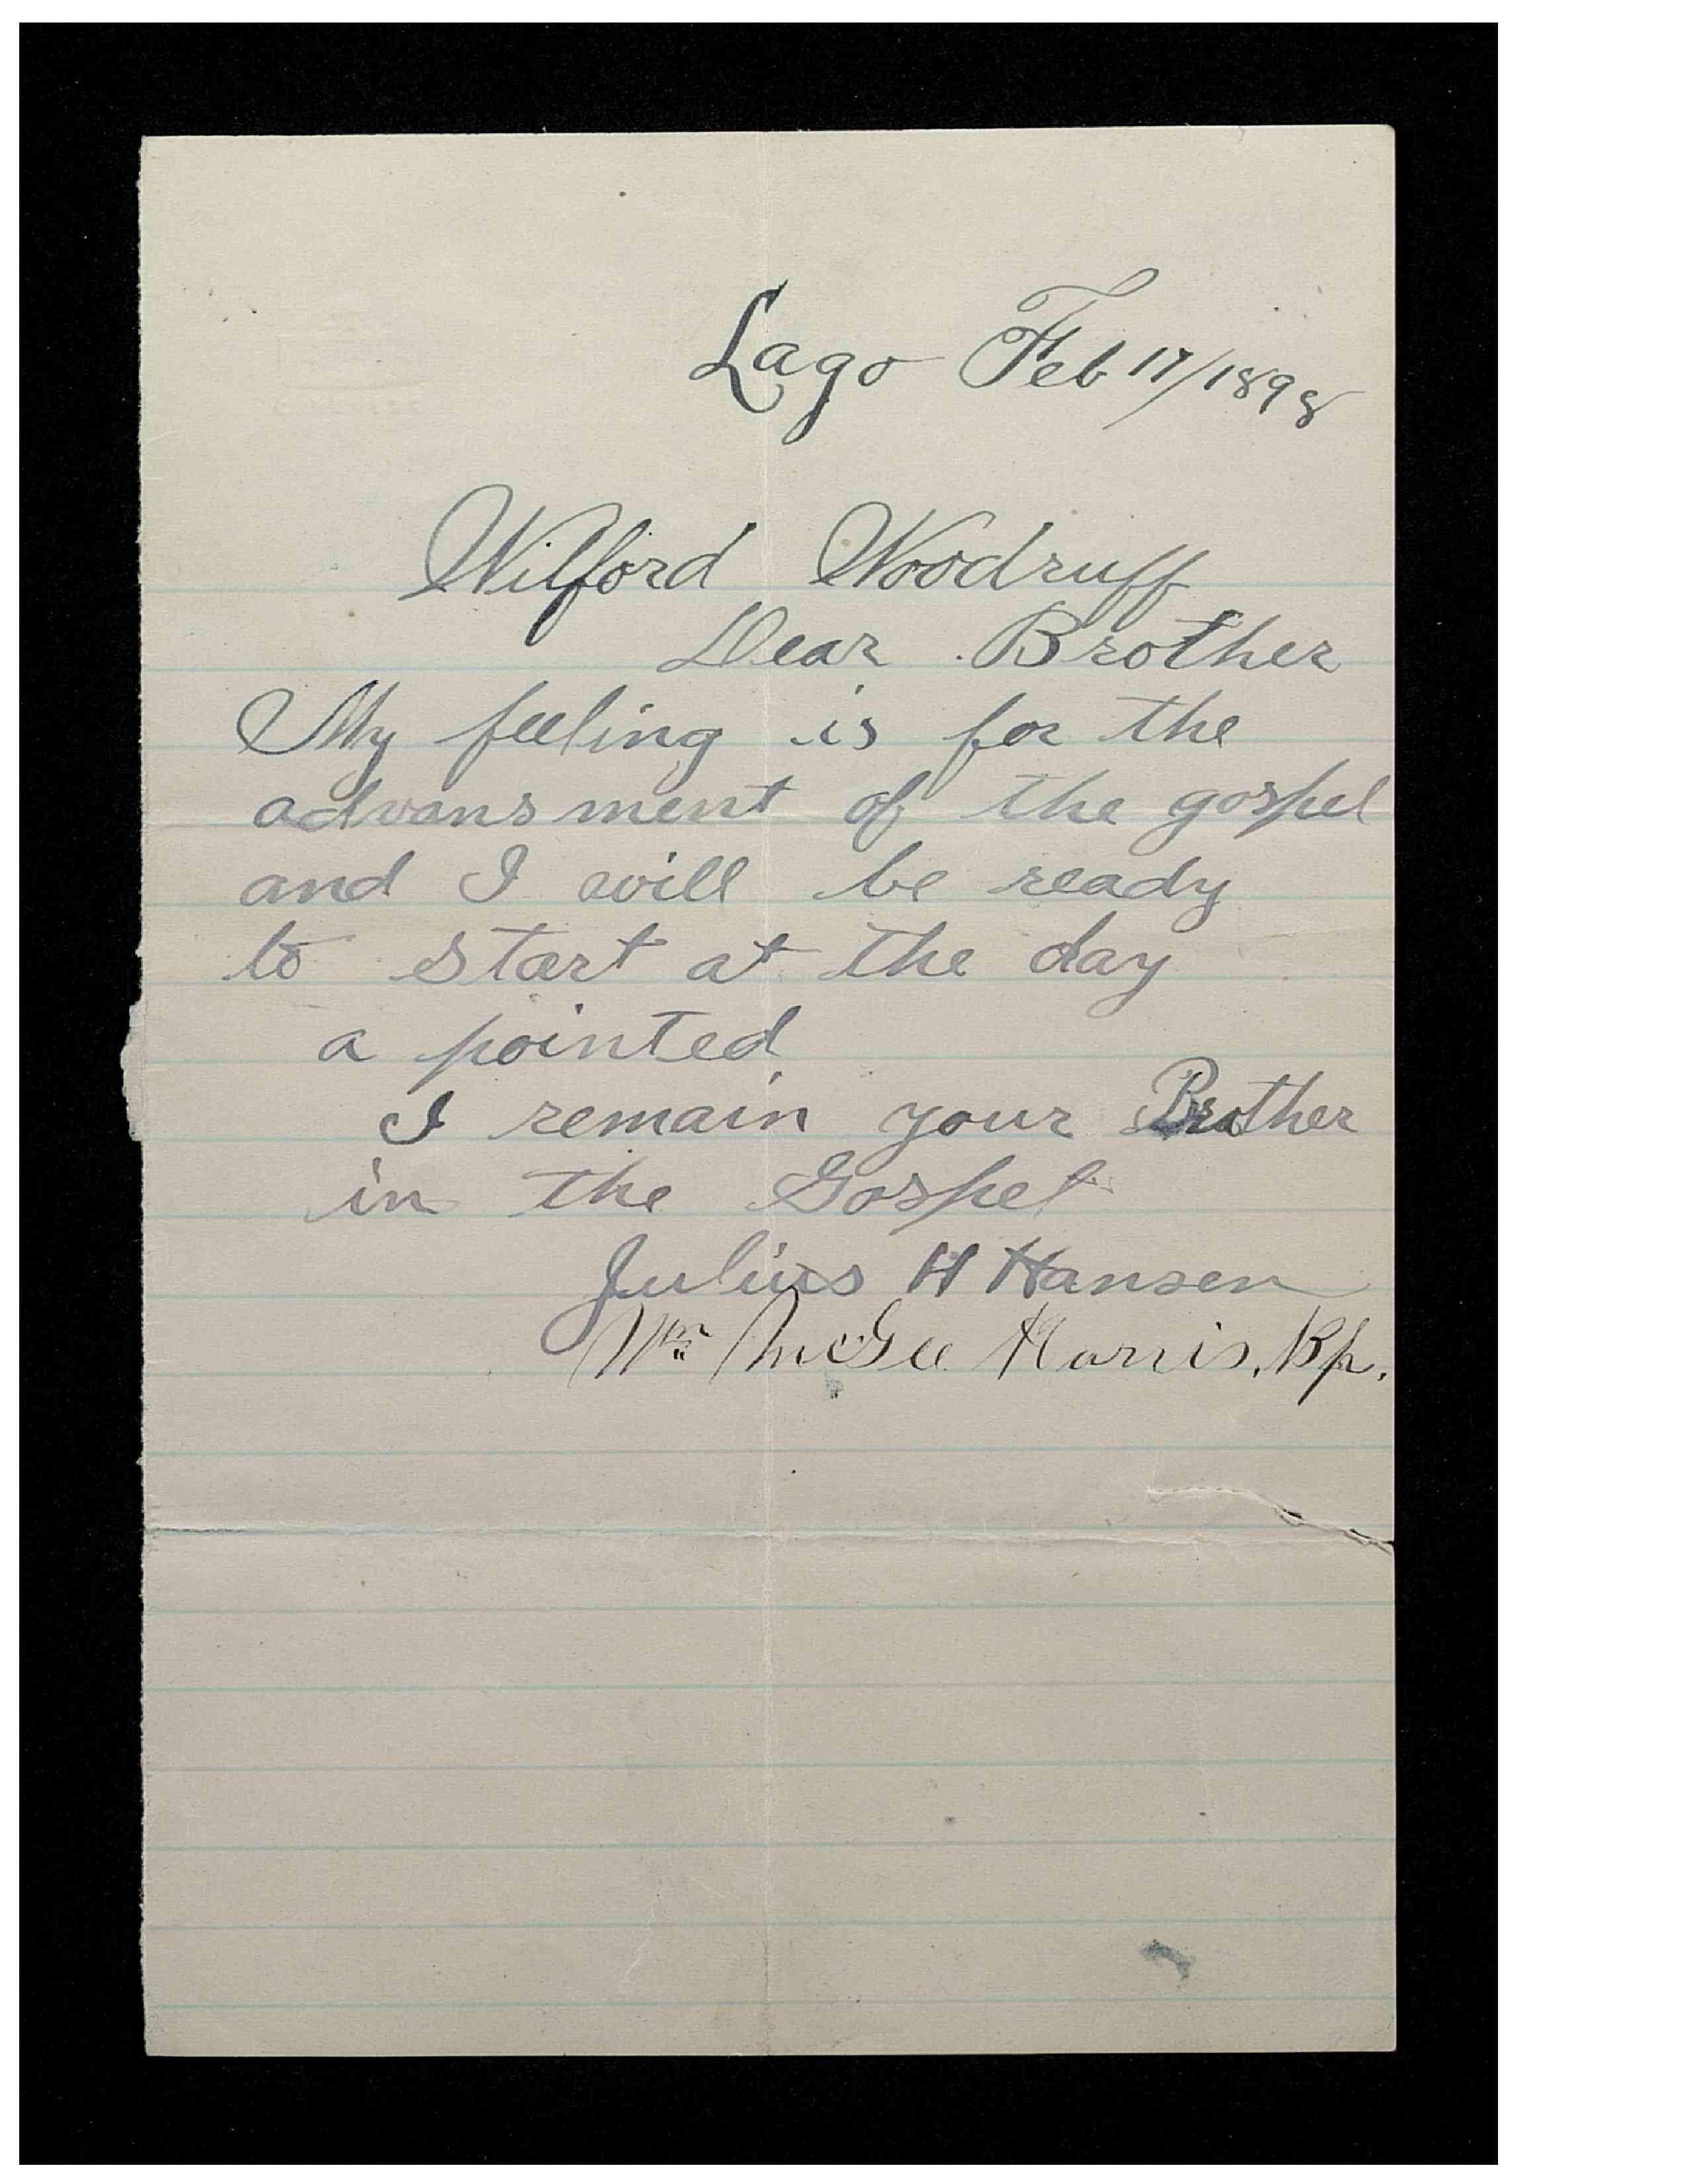 Lago Feb 17/1898
Wilford Woodruff
Dear Brother
My feeling is for the
advansment of the gospel
and I will be ready
to start at the day
a pointed
I remain your Brother
in the Gospel
Julius H Hansen
Wm McGee Harris, Bp.